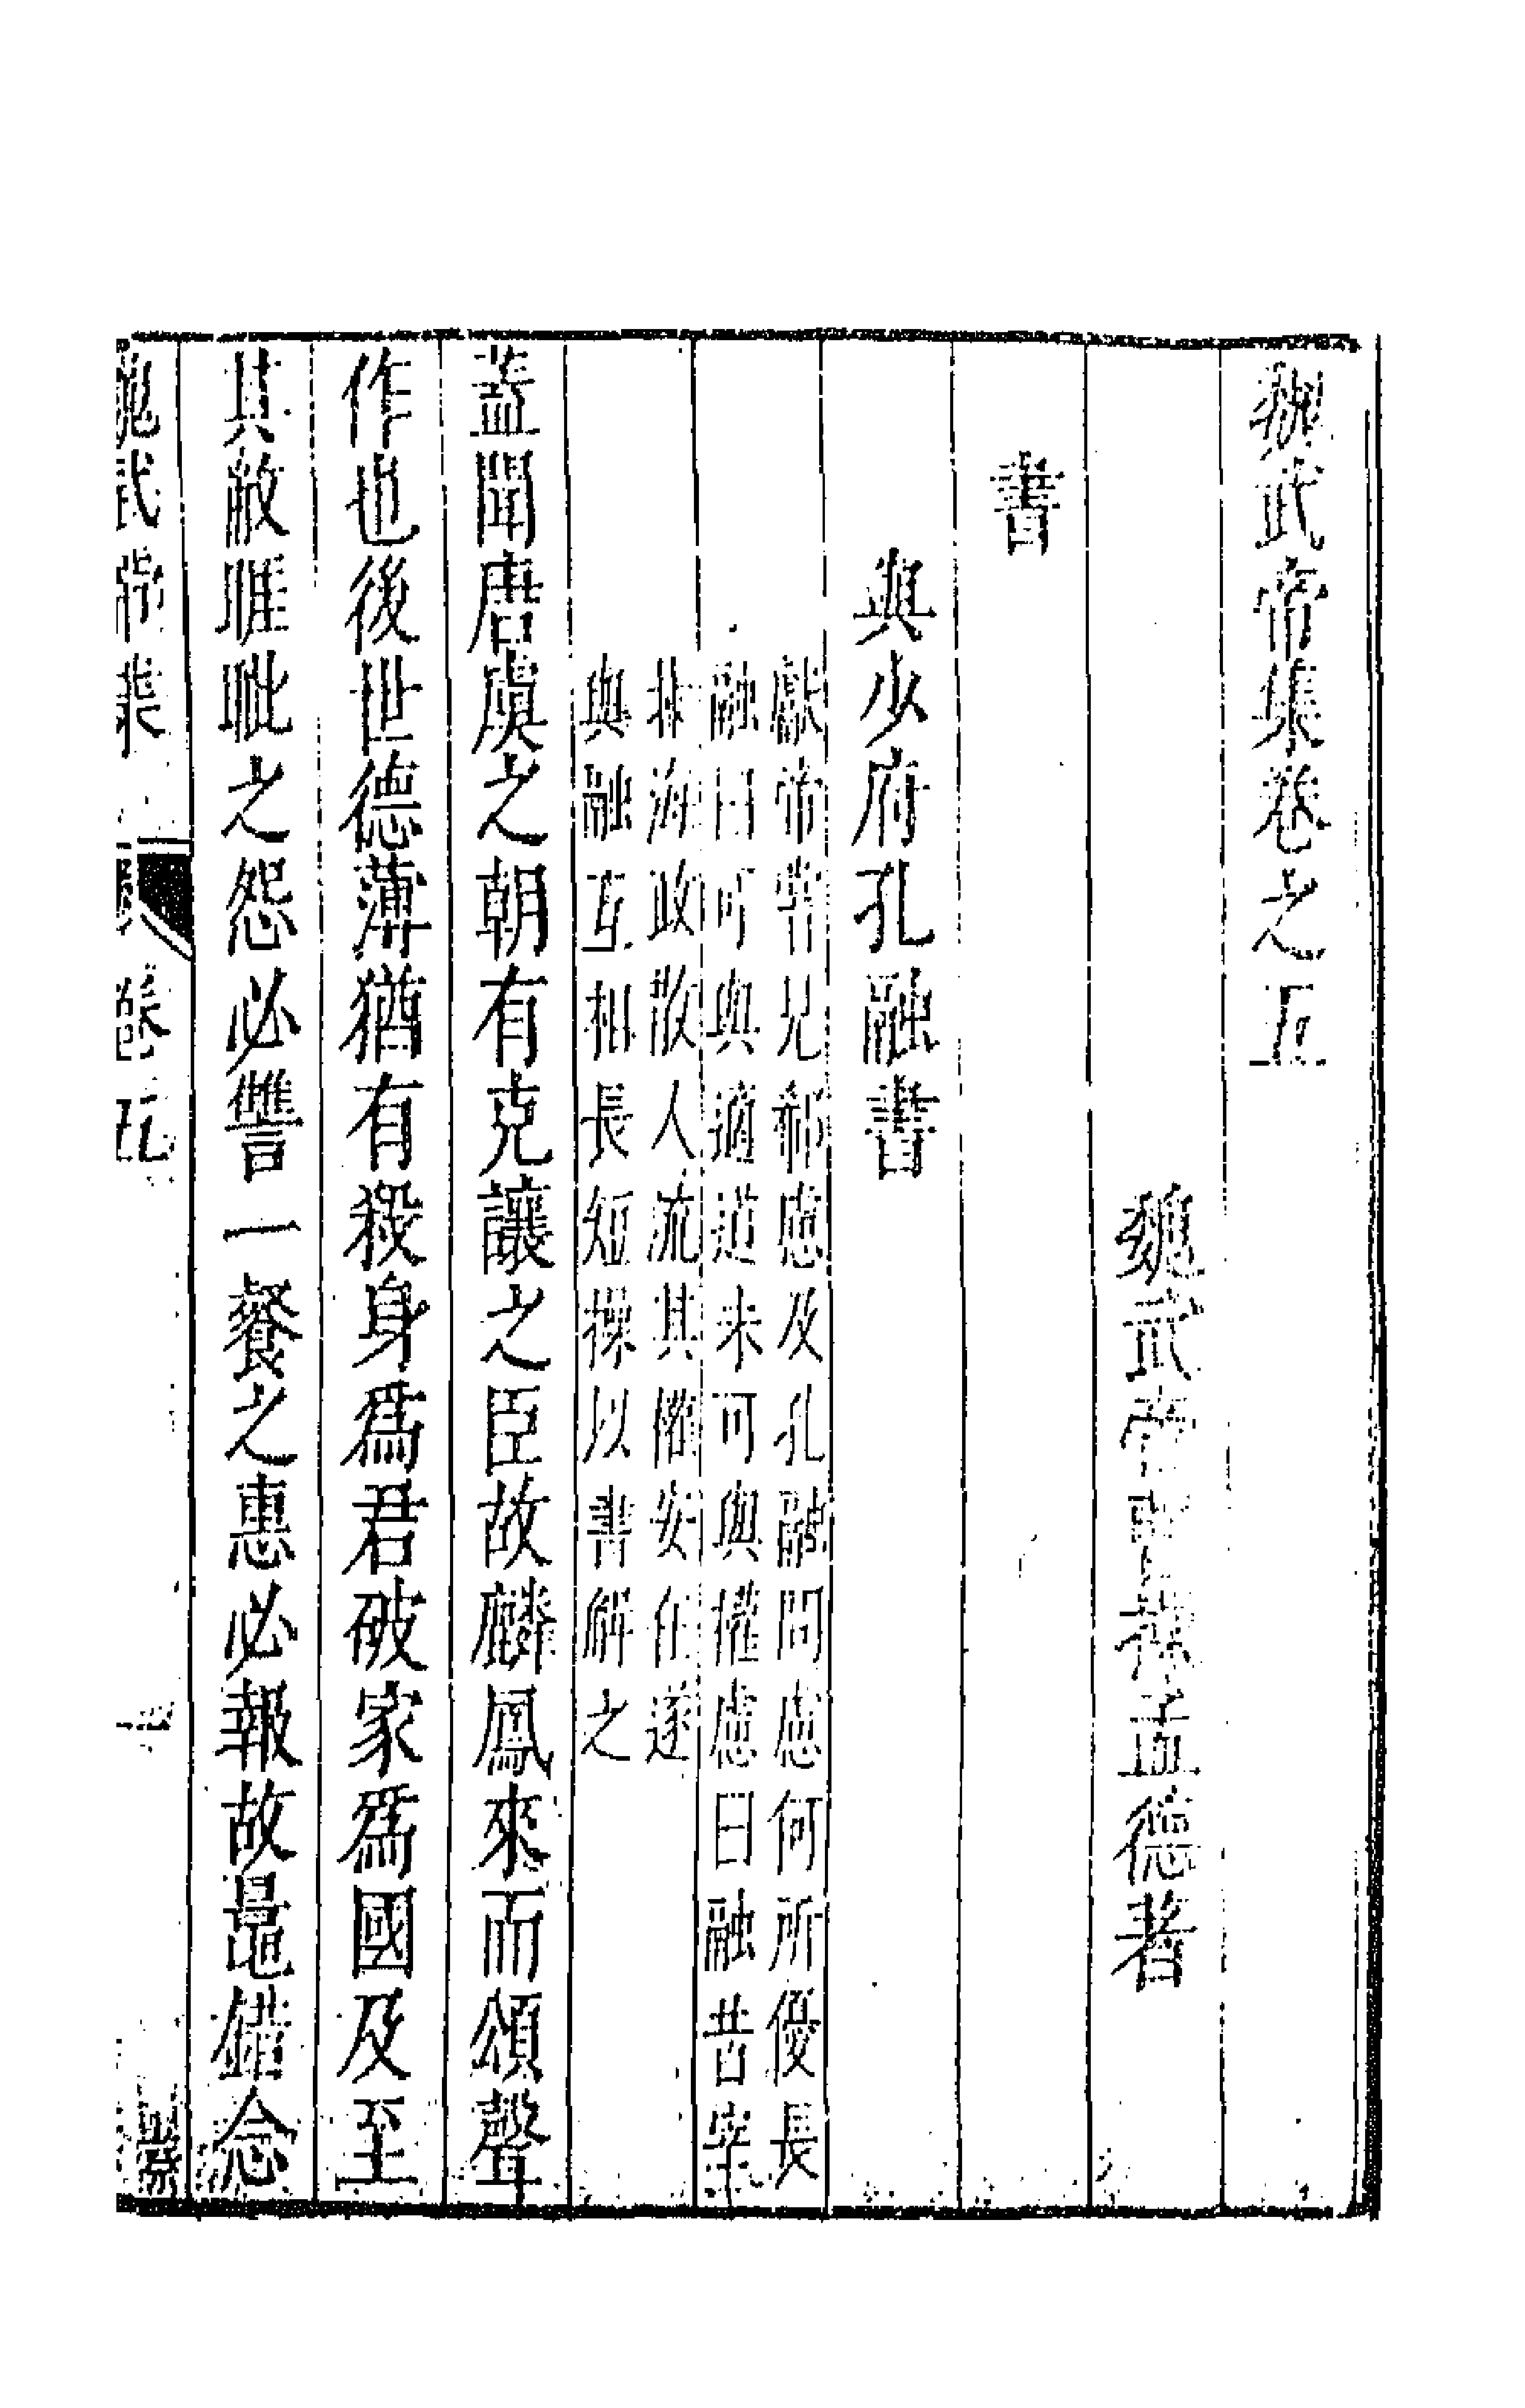 魏武帝集卷之五
魏武帝曹操孟德著
書
與少府孔融書
獻帝嘗見郗慮及孔融問慮何所優長
融曰可與適道未可與權慮曰融昔宰
北海政散人流其權安在遂
與融互相長短操以書解之
蓋聞唐虞之朝有克讓之臣故麟鳳來而頌聲
作也後世德薄猶有殺身爲君破家爲國及至
其敝睚眦之怨必讐一餐之惠必報故鼂錯念
魏武帝集 卷五 一